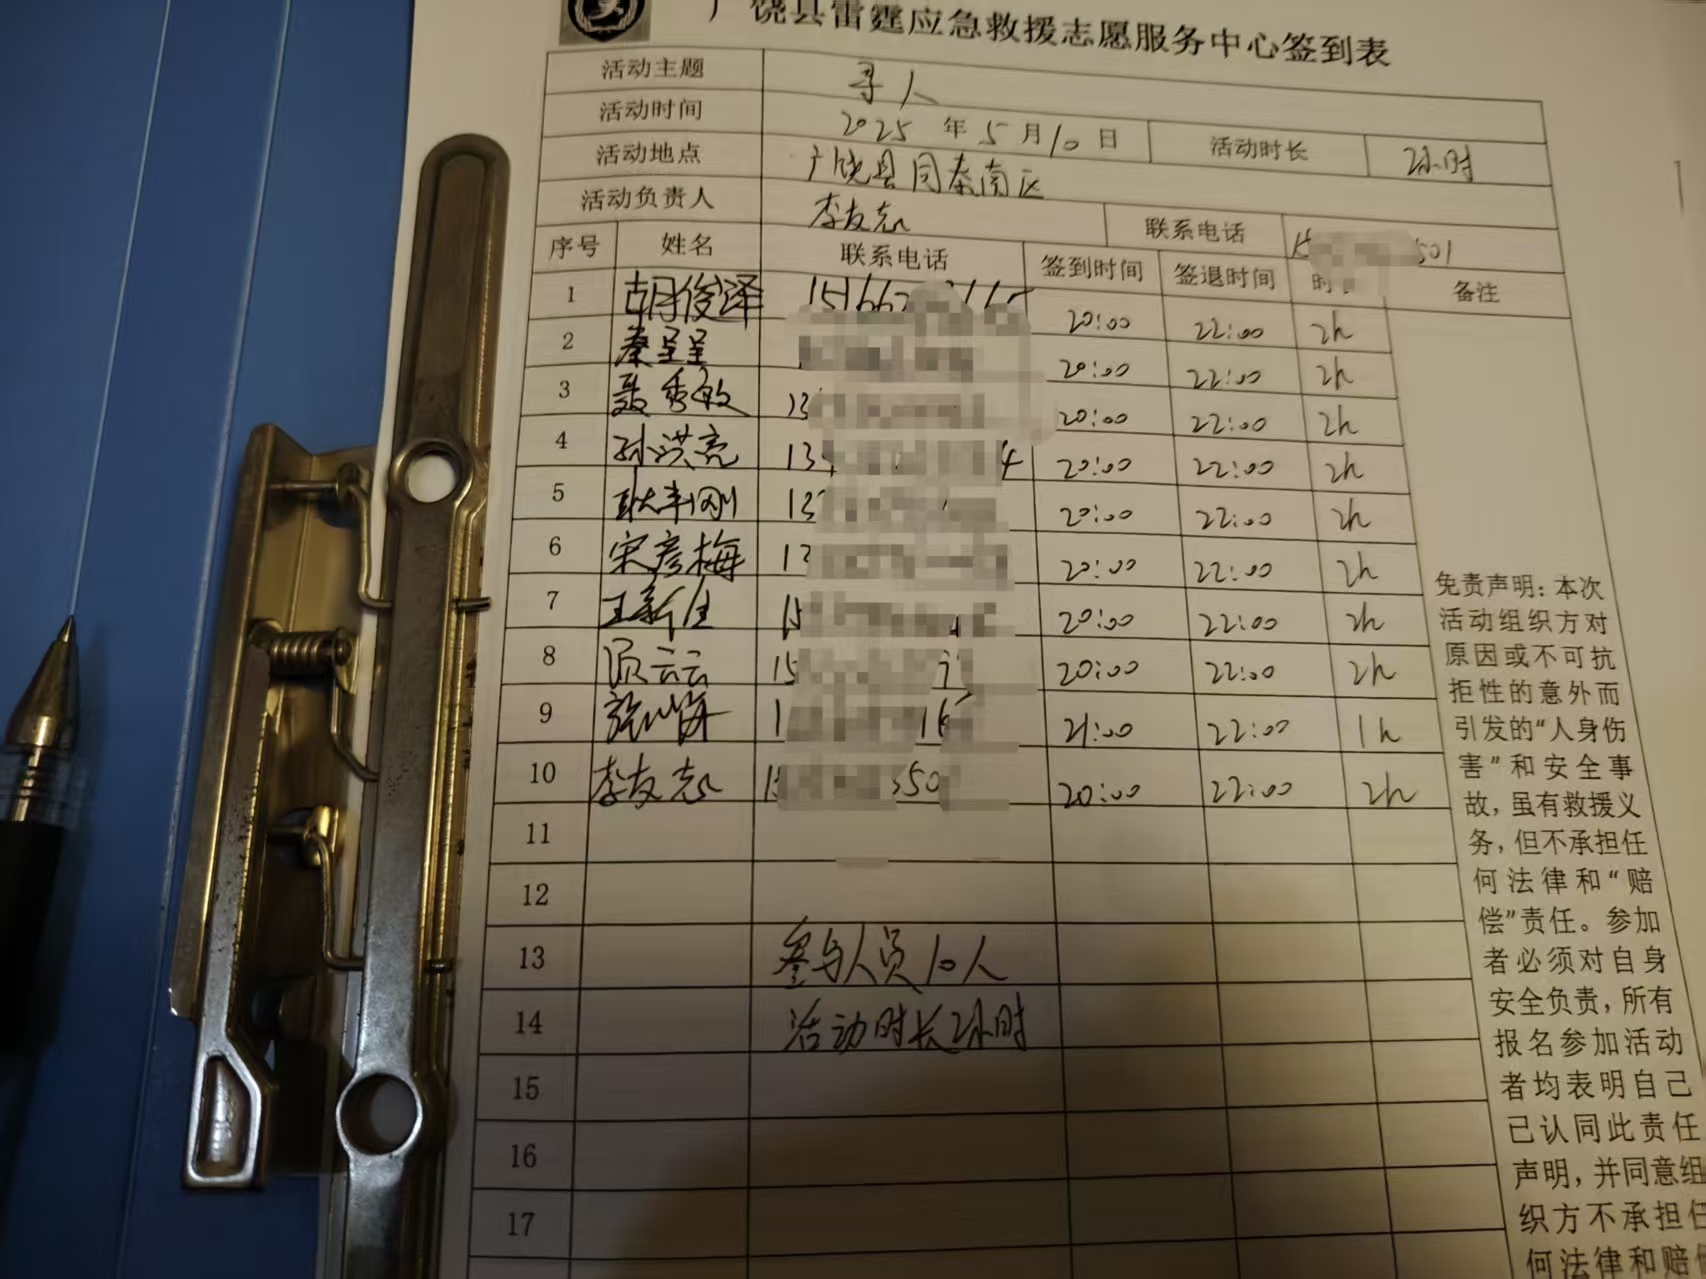 广饶县雷霆应急救援志愿服务中心签到表
活动主题 寻人
活动时间 2025 年 5 月 10 日 活动时长 2小时
活动地点 广饶县同泰南区
活动负责人 李友志 联系电话 501
序号 姓名 联系电话 签到时间 签退时间 备注
1 胡俊泽 20:00 22:00 2h
2 秦呈呈 20:00 22:00 2h
3 聂秀敏 13 20:00 22:00 2h
4 孙洪亮 13 4 20:00 22:00 2h
5 耿丰刚 13 20:00 22:00 2h
6 宋彦梅 20:00 22:00 2h
7 王新生 15 20:00 22:00 2h
8 云云 15 20:00 22:00 2h
9 1 21:00 22:00 1h
10 李友志 350 20:00 22:00 2h
11
12
13 参与人员10人
14 活动时长2小时
15
16
17
免责声明：本次
活动组织方对
原因或不可抗
拒性的意外而
引发的“人身伤
害”和安全事
故，虽有救援义
务，但不承担任
何法律和“赔
偿”责任。参加
者必须对自身
安全负责，所有
报名参加活动
者均表明自己
已认同此责任
声明，并同意组
织方不承担任
何法律和赔